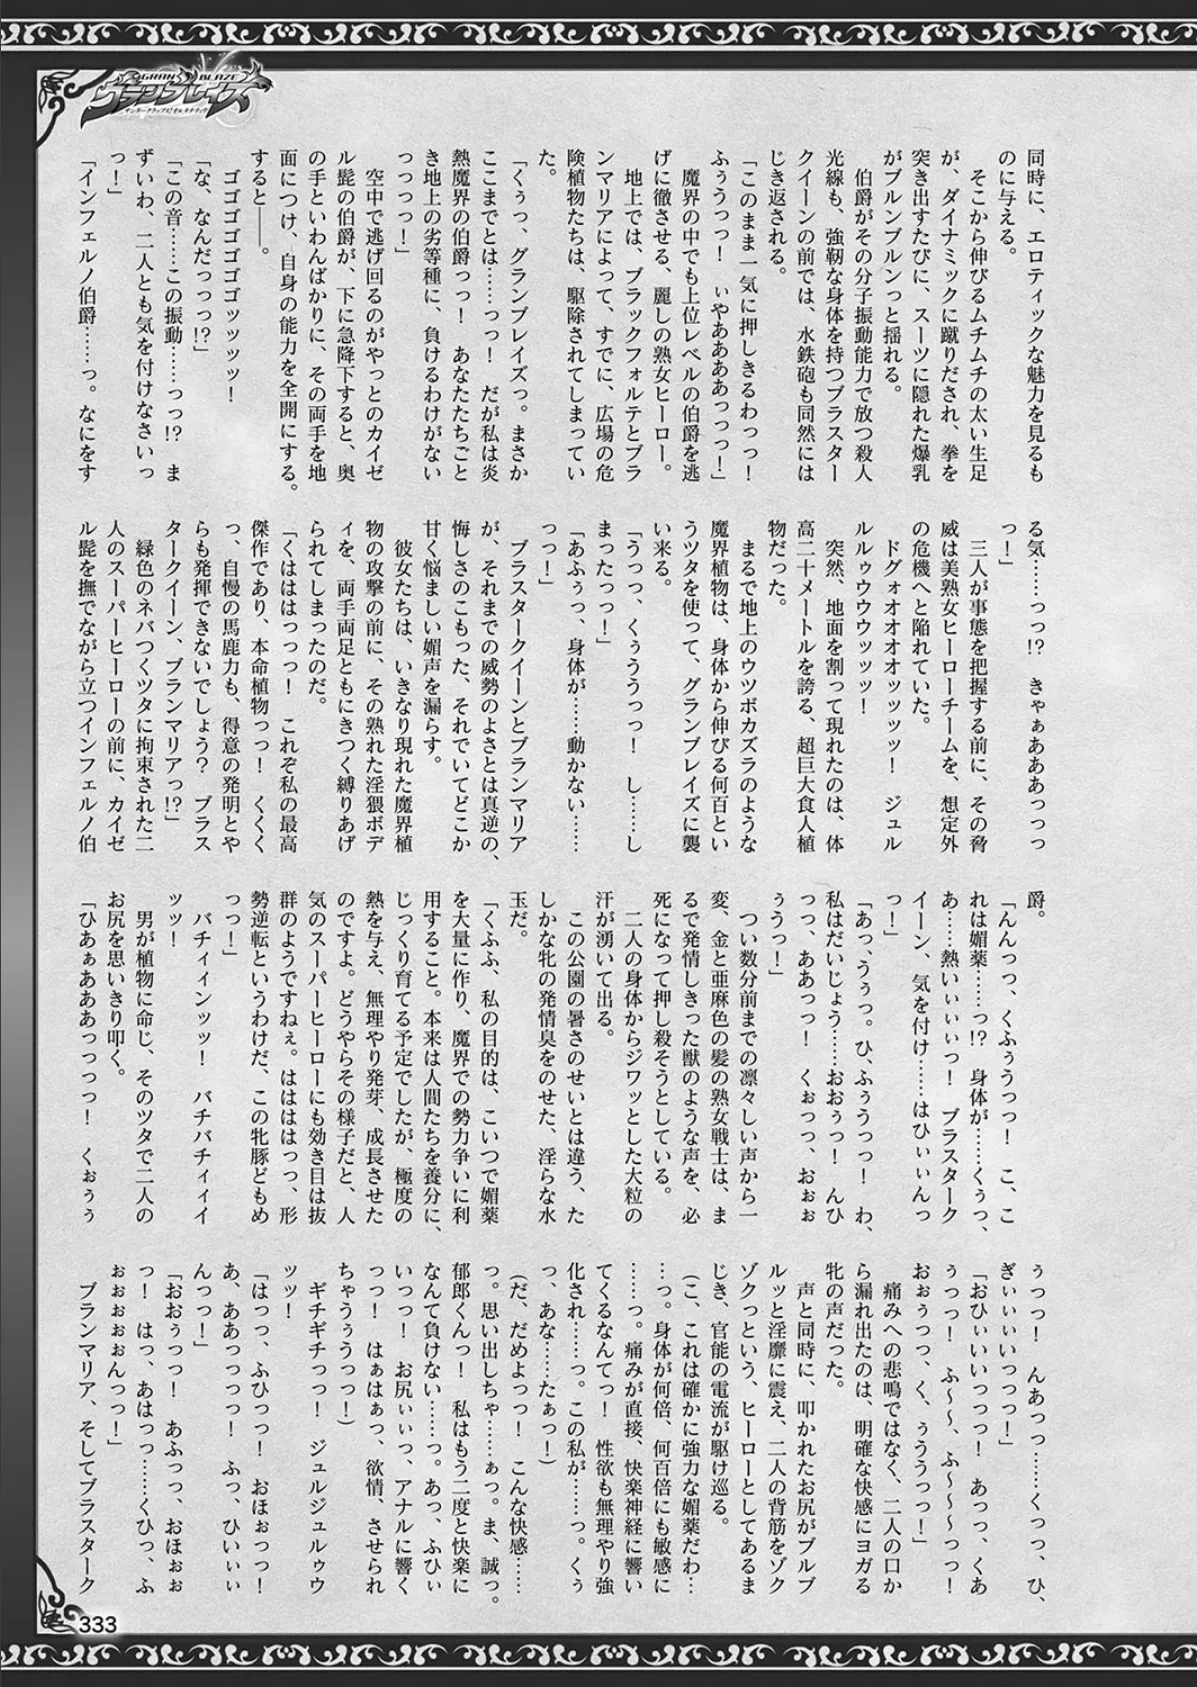 GRAN BLAZE
グランブレイズ
同時に、エロティックな魅力を見るも
のに与える。
　そこから伸びるムチムチの太い生足
が、ダイナミックに蹴りだされ、拳を
突き出すたびに、スーツに隠れた爆乳
がブルンブルンっと揺れる。
　伯爵がその分子振動能力で放つ殺人
光線も、強靭な身体を持つブラスター
クイーンの前では、水鉄砲も同然には
じき返される。
「このまま一気に押しきるわっっ！
ふぅうっっ！　ぃやああああっっっ！」
　魔界の中でも上位レベルの伯爵を逃
げに徹させる、麗しの熟女ヒーロー。
　地上では、ブラックフォルテとブラ
ンマリアによって、すでに、広場の危
険植物たちは、駆除されてしまってい
た。
「くぅっ、グランブレイズっ。まさか
ここまでとは……っっ！　だが私は炎
熱魔界の伯爵っっ！　あなたたちごと
き地上の劣等種に、負けるわけがない
っっっっ！」
　空中で逃げ回るのがやっとのカイゼ
ル髭の伯爵が、下に急降下すると、奥
の手といわんばかりに、その両手を地
面につけ、自身の能力を全開にする。
すると――。
　ゴゴゴゴゴゴゴッッッッ！
「な、なんだっっっ!?」
「この音……この振動……っっ!?　ま
ずいわ、二人とも気を付けなさいっ
っ！」
「インフェルノ伯爵……っ。なにをす
る気……っっ!?　きゃぁあああっっっ
っ！」
　三人が事態を把握する前に、その脅
威は美熟女ヒーローチームを、想定外
の危機へと陥れていた。
　ドグォオオオオッッッッ！　ジュル
ルルゥウウウウッッッ！
　突然、地面を割って現れたのは、体
高二十メートルを誇る、超巨大食人植
物だった。
　まるで地上のウツボカズラのような
魔界植物は、身体から伸びる何百とい
うツタを使って、グランブレイズに襲
い来る。
「うっっ、くぅううっっ！　し……し
まったっっ！」
「あふぅっ、身体が……動かない……
っっ！」
　ブラスタークイーンとブランマリア
が、それまでの威勢のよさとは真逆の、
悔しさのこもった、それでいてどこか
甘く悩ましい媚声を漏らす。
　彼女たちは、いきなり現れた魔界植
物の攻撃の前に、その熟れた淫猥ボデ
ィを、両手両足ともにきつく縛りあげ
られてしまったのだ。
「くはははっっっ！　これぞ私の最高
傑作であり、本命植物っっ！　くくく
っ、自慢の馬鹿力も、得意の発明とや
らも発揮できないでしょう？　ブラス
タークイーン、ブランマリアっ!?」
　緑色のネバつくツタに拘束された二
人のスーパーヒーローの前に、カイゼ
ル髭を撫でながら立つインフェルノ伯
爵。
「んんっっ、くふぅうっっ！　こ、こ
れは媚薬……っ!?　身体が……くぅっ、
あ……熱いぃぃぃっ！　ブラスターク
イーン、気を付け……はひぃぃんっ
っ！」
「あっ、うぅっ。ひ、ふぅうっっ！　わ、
私はだいじょう……おおぅっ！　んひ
っっ、ああっっ！　くぉっっ、おぉぉ
ぅうっ！」
　つい数分前までの凛々しい声から一
変、金と亜麻色の髪の熟女戦士は、ま
るで発情しきった獣のような声を、必
死になって押し殺そうとしている。
　二人の身体からジワッとした大粒の
汗が湧いて出る。
　この公園の暑さのせいとは違う、た
しかな牝の発情臭をのせた、淫らな水
玉だ。
「くふふ、私の目的は、こいつで媚薬
を大量に作り、魔界での勢力争いに利
用すること。本来は人間たちを養分に、
じっくり育てる予定でしたが、極度の
熱を与え、無理やり発芽、成長させた
のですよ。どうやらその様子だと、人
気のスーパーヒーローにも効き目は抜
群のようですねぇ。はははははっっ、形
勢逆転というわけだ、この牝豚どもめ
っっ！」
　バチィィンッッ！　バチバチィィイ
ッッ！
　男が植物に命じ、そのツタで二人の
お尻を思いきり叩く。
「ひあぁあああっっっっ！　くぉぅぅ
ぅっっ！　んあっっ……くっっ、ひ、
ぎぃぃぃぃいっっっ！」
「おひぃいいっっっ！　あっっ、くあ
ぅっっ！　ふ～～、ふ～～～っっ！
おぉぅっっ、く、ぅううっっ！」
　痛みへの悲鳴ではなく、二人の口か
ら漏れ出たのは、明確な快感にヨガる
牝の声だった。
　声と同時に、叩かれたお尻がブルブ
ルッと淫靡に震え、二人の背筋をゾク
ゾクっという、ヒーローとしてあるま
じき、官能の電流が駆け巡る。
（こ、これは確かに強力な媚薬だわ…
…っ。身体が何倍、何百倍にも敏感に
……っ。痛みが直接、快楽神経に響い
てくるなんてっ！　性欲も無理やり強
化され……っ。この私が……っ。くぅ
っ、あな……たぁっ！）
（だ、だめよっっ！　こんな快感……
っ。思い出しちゃ……ぁっ。ま、誠っ。
郁郎くんっ！　私はもう二度と快楽に
なんて負けない……っ。あっ、ふひぃ
いっっ！　お尻ぃぃっ、アナルに響く
っっ！　はぁはぁっ、欲情、させられ
ちゃうぅうっっ！）
　ギチギチっっ！　ジュルジュルゥウ
ッッ！
「はっっ、ふひっっ！　おほぉっっ！
あ、ああっっっっ！　ふっ、ひいぃぃ
んっっ！」
「おおぅっっ！　あふっっ、おほぉぉ
っ！　はっ、あはっっ……くひっ、ふ
ぉぉぉぉぉんっっ！」
　ブランマリア、そしてブラスターク
333